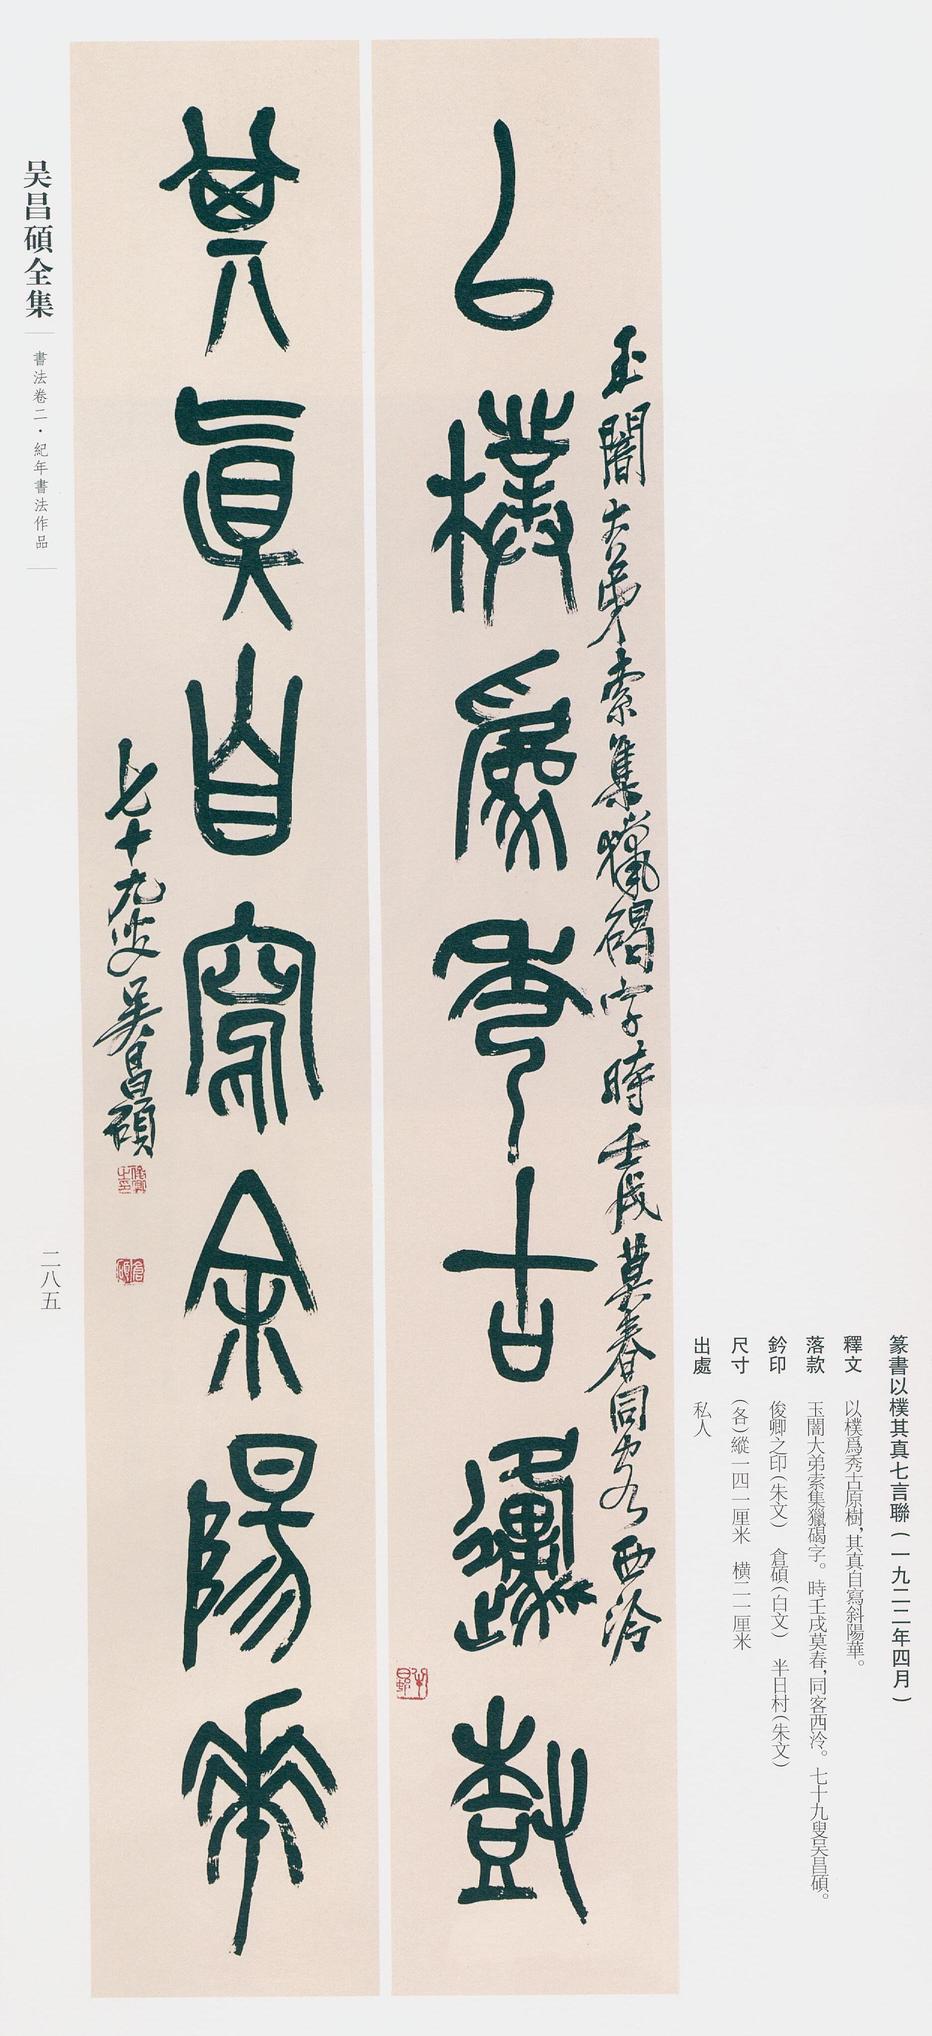 篆書以樸其真七言聯（一九二二年四月）
釋文　以樸爲秀古原樹，其真自寫斜陽華。
落款　玉闇大弟索集獵碣字。時壬戌莫春，同客西泠。七十九叟吴昌碩。
鈐印　俊卿之印（朱文）　倉碩（白文）　半日村（朱文）
尺寸　（各）縱一四一厘米　橫二一厘米
出處　私人
玉闇大弟索集獵碣字時壬戌莫春同客西泠
以樸爲秀古原樹
半日邨
其真自寫余陽華
七十九叟吴昌碩
俊卿之印
倉碩
吴昌碩全集
書法卷二·紀年書法作品
二八五